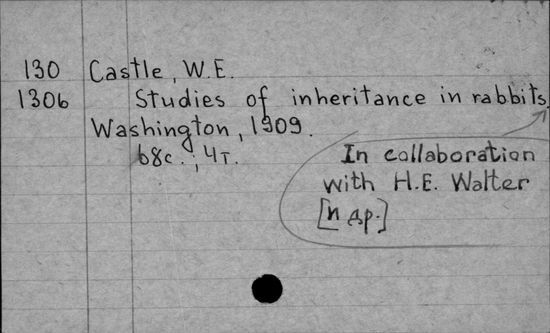 130 Castle, W.E.
1306 Studies of inheritance in rabbits.
Washington, 1909.
68c.; 4т.
In collaboration
with H.E. Walter
[и др.]